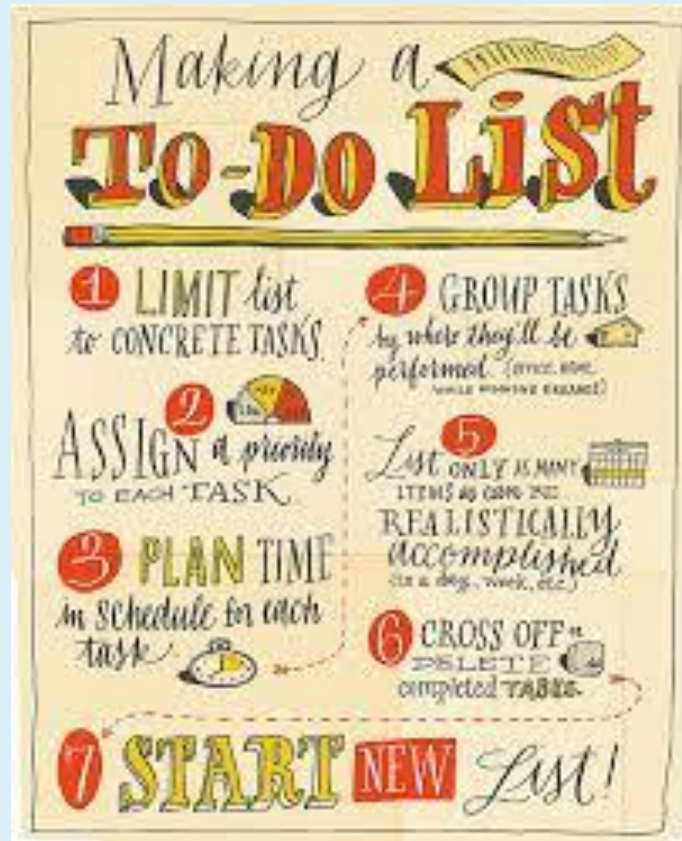 Making a
TO-DO LiST
1 LIMIT list
to CONCRETE TASKS.
2
ASSIGN a priority
TO EACH TASK.
3 PLAN TIME
in schedule for each
task
4 GROUP TASKS
by where they'll be
performed. (OFFICE, HOME,
WHILE RUNNING ERRANDS)
5
List ONLY AS MANY
ITEMS AS CAN BE
REALISTICALLY
accomplished
(in a day, week, etc.)
6 CROSS OFF or
DELETE
completed TASKS.
7 START NEW List!